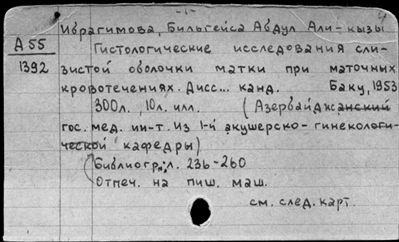 Ибрагимова, Бильгейса Абдул Али-кызы
А 55
1392
Гистологические исследования сли-
зистой оболочки матки при маточных
кровотечениях. Дисс... канд. Баку, 1953
300л. 10л. илл. (Азербайджанский
гос. мед. ин-т. Из 1-й акушерско-гинекологи-
ческой кафедры)
(Библиогр.: л. 236-260
Отпеч. на пиш. маш.
см. след. карт.